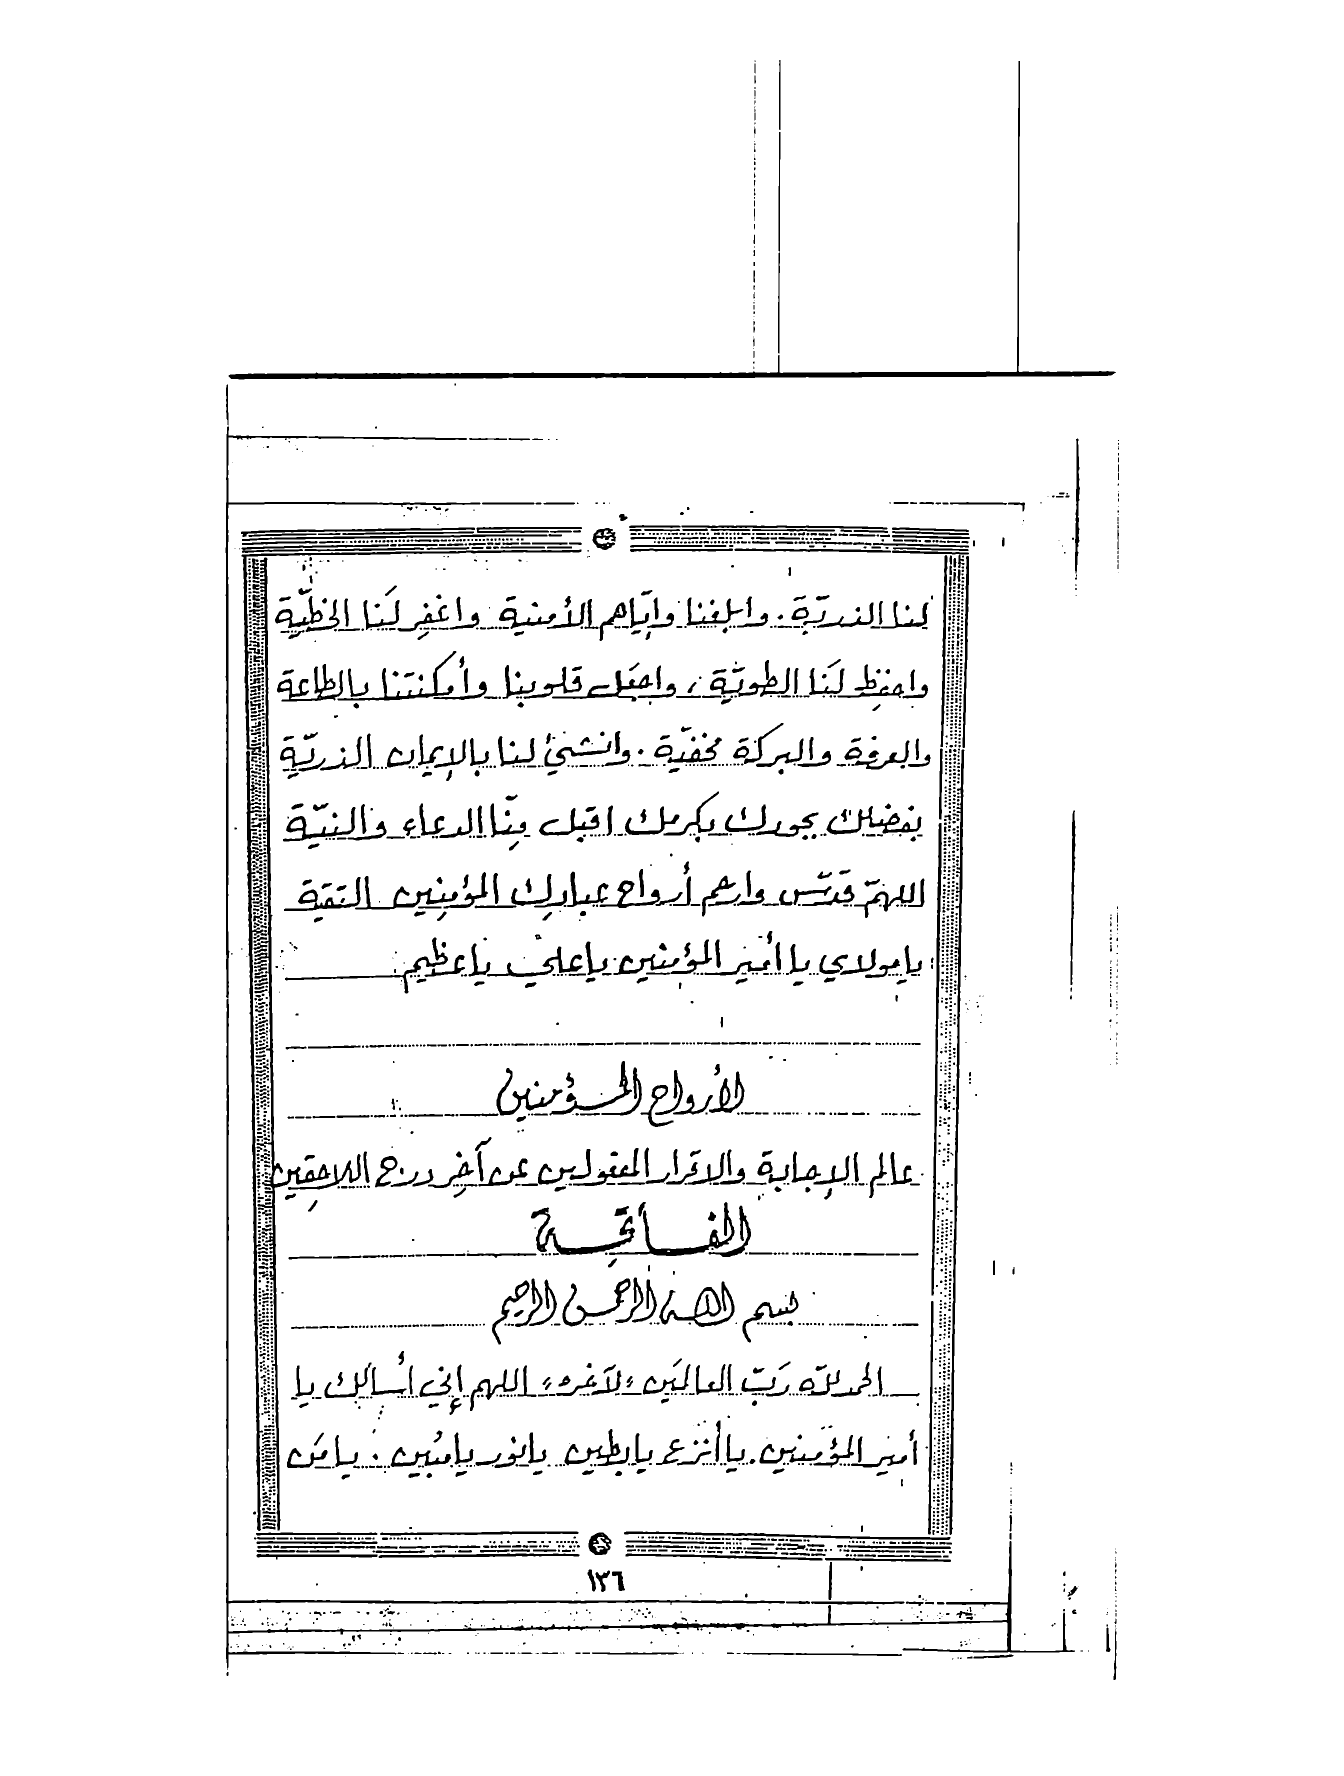 لنا الذريّة. وابلغنا وإيّاهم الأمنية واغفِر لَنا الخطيّة
واحفِظ لَنا الطويّة، واجعَل قلوبنا وأمكنتنا بالطاعة
والعرفة والبركة مخفيّة. وانشئ لنا بالإيمان الذريّة
بفضلك بجودك بكرمك اقبل مِنّا الدعاء والنيّة
اللهمّ قدّس وارحم أرواح عبادِك المؤمِنين التقية
يا مولاي يا أمير المؤمنين يا علي يا عظيم
لأرواح المؤمنين
عالم الإجابة والاقرار المنقولين عن آخِر درج اللاحِقين
الفاتحة
بسم الله الرحمن الرحيم
الحمد لله رَبّ العالمَين «لآخره» اللهم إني أسألك يا
أمير المؤمنين. يا أنزع يا بطين يا نور يا مُبين. يا مَن
١٣٦